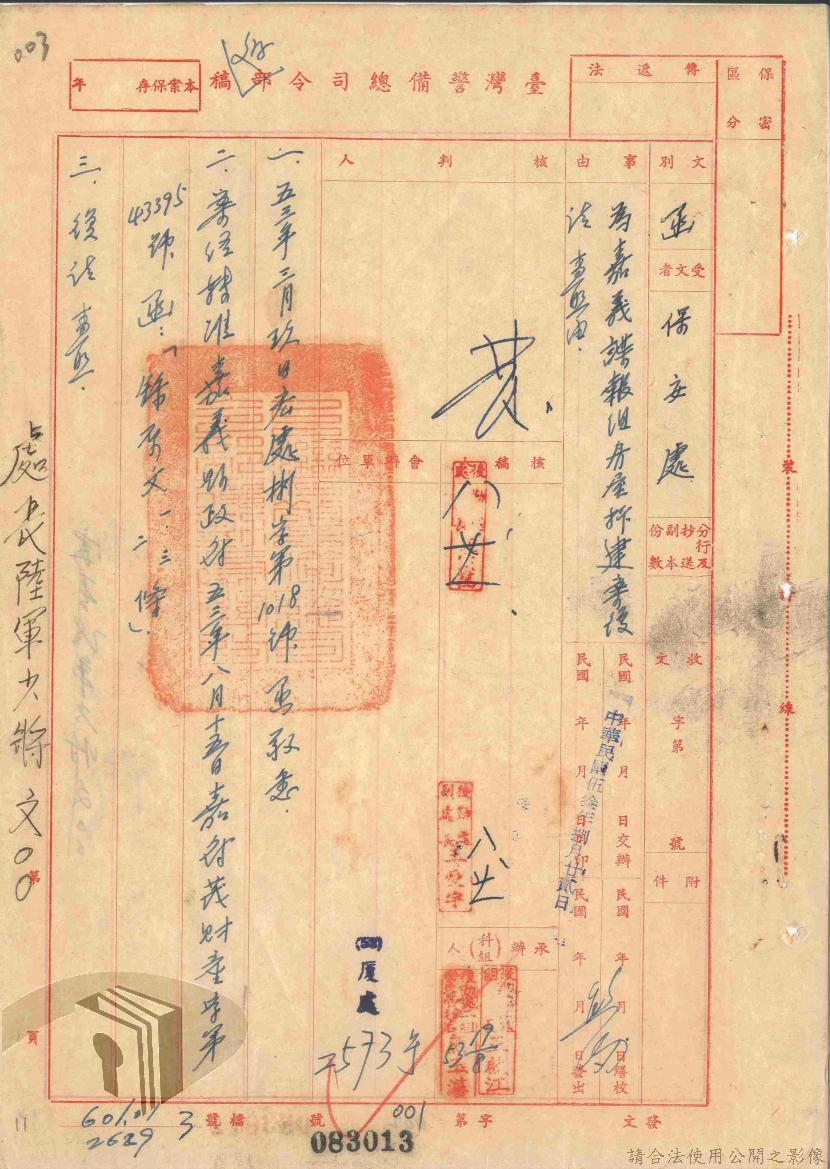 003
臺灣警備總司令部稿
本案保存 年
傳遞法
保密
區分
文別
函
受文者
保安處
分行及
抄送
副本
份數
事由
為嘉義諜報組房屋拆建案復
請 查照由
核判人
核稿
會辦單位
收文 字第 號
附件
民國 年 月 日交辦
民國 年 月 日封印
民國 年 月 日繕校
民國 年 月 日發出
中華民國伍叁年捌月廿貳日
承辦(科組)人
一、五三年三月玖日宏處彬字第1018號函敬悉.
二、案經轉准嘉義縣政府五三年八月十五日嘉府茂財產字第
43395號函:「錄原文一.二.三條」
三、復請 查照.
處長陸軍少將文○○
(53)
厦處
573
53
19
8
裝
線
第
頁
發文 字第 號
001
檔號
601.01
2629
3
083013
11
請合法使用公開之影像